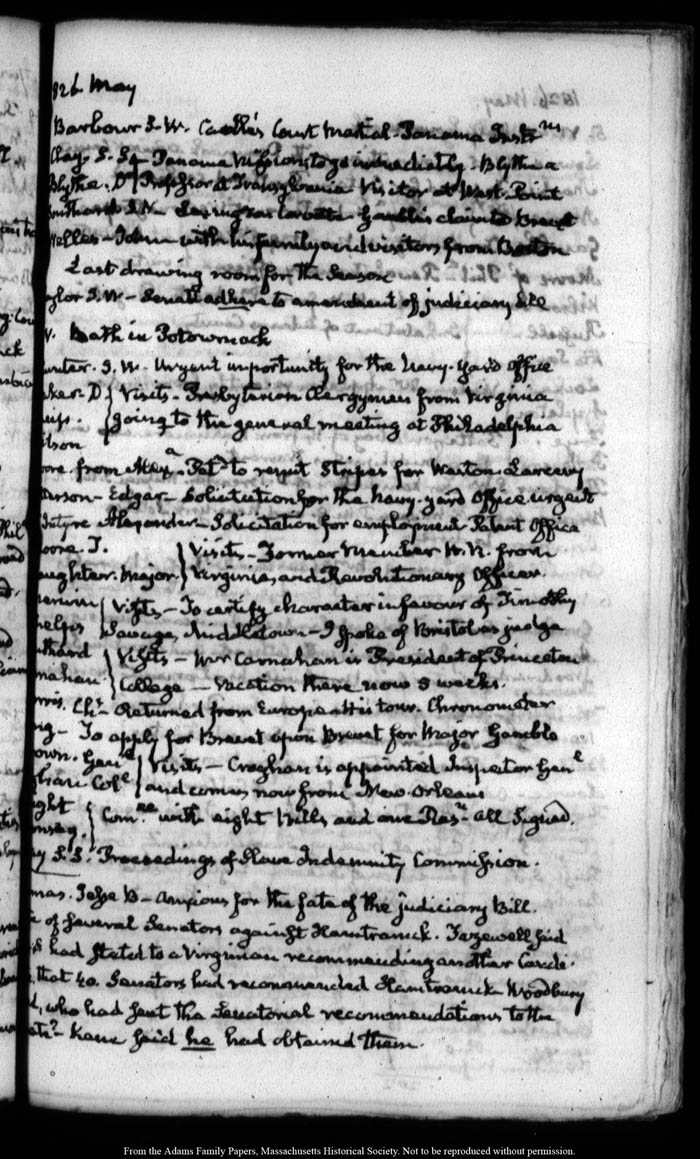 1826. May
Barbour S.W. Court Martial - Panama Instr.ns
Clay. S.S. Panama Missions to go immediately. Blythe a
Blythe. D Professor at Transylvania Visitor at West-Point
Southard S.N. Gamble's claim to Brevet
Welles - John with his family and visitors from Boston
Last drawing room for the Season
Taylor J.W - Senate adhere to amendment of judiciary Bill
Bath in Potowmack
S.W. Urgent importunity for the Navy-yard Office
D. Visits - Presbyterian Clergymen from Virginia
going to the general meeting at Philadelphia
ilson
from Alex.a Pet.n to remit Stripes for Larceny
erson - Edgar - Solicitation for the Navy-yard Office urgent
Intyre Alexander - Solicitation for employment Patent Office
oore. T. Visits - Former Member H.R. from
aughter. Major. Virginia, and Revolutionary Officer.
Visits - To certify character in favour of Timothy
helps Savage, Middletown - I spoke of Bristol as judge
uthard Visits - Mr Carnahan is President of Princeton
nahan College - Vacation there now 5 weeks.
rris. Ch.s Returned from Europe - His tour. Chronometer
To apply for Brevet upon Brevet for Major Gamble
own. Gen.l Visits - Croghan is appointed Inspector Gen.l
ghan Col.l and comes now from New-Orleans
ght Com.ee with eight Bills and one Res.n All Signed.
msay.
ay S.S. Proceedings of Slave Indemnity Commission.
mas. Jesse B - Anxious for the fate of the judiciary Bill.
of several Senators against Hamtramck. Tazewell said
had stated to a Virginian recommending another Candi-
that 40. Senators had recommended Hamtramck Woodbury
who had sent the Senatorial recommendations to the
Kane said he had obtained them.
From the Adams Family Papers, Massachusetts Historical Society. Not to be reproduced without permission.